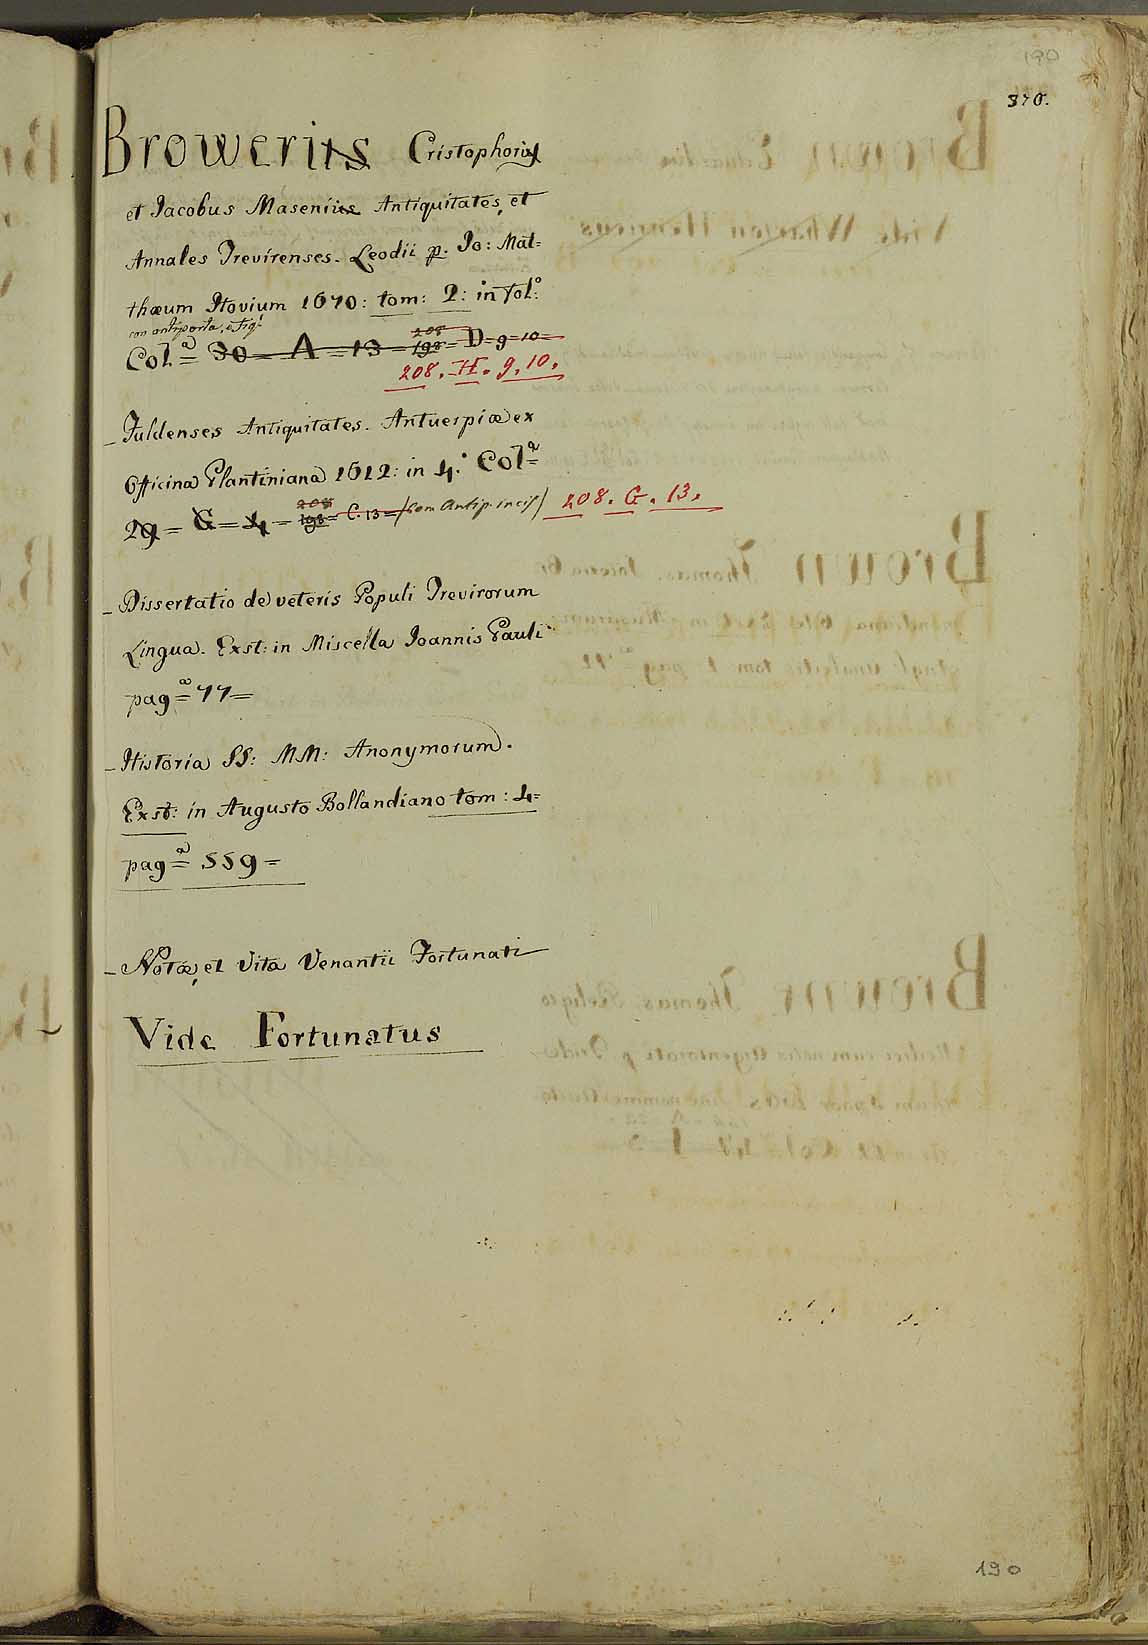 190
370.
Browerius Cristophorus
et Jacobus Masenius Antiquitates, et
Annales Trevirenses. Leodii p. Jo: Mat=
thæum Hovium 1670: tom: 2: in fol.º
con antiporta, e fig.
Col.ª 30 = A = 13 = 198 208 = D = 9 = 10 =
208. H. 9. 10.
_ Fuldenses Antiquitates. Antuerpiæ ex
Officina Plantiniana 1612: in 4.º Col.ª
29 = G = 4 = 198 208 = C. 13 = (Com Antip. incis) 208. G. 13.
_ Dissertatio de veteris Populi Trevirorum
Lingua. Exst: in Miscella Joannis Pauli
pag.ª 77 =
_ Historia SS: MM: Anonymorum.
Exst: in Augusto Bollandiano tom: 4=
pag.ª 559 =
_ Notæ, et Vita Venantii Fortunati
Vide Fortunatus
190